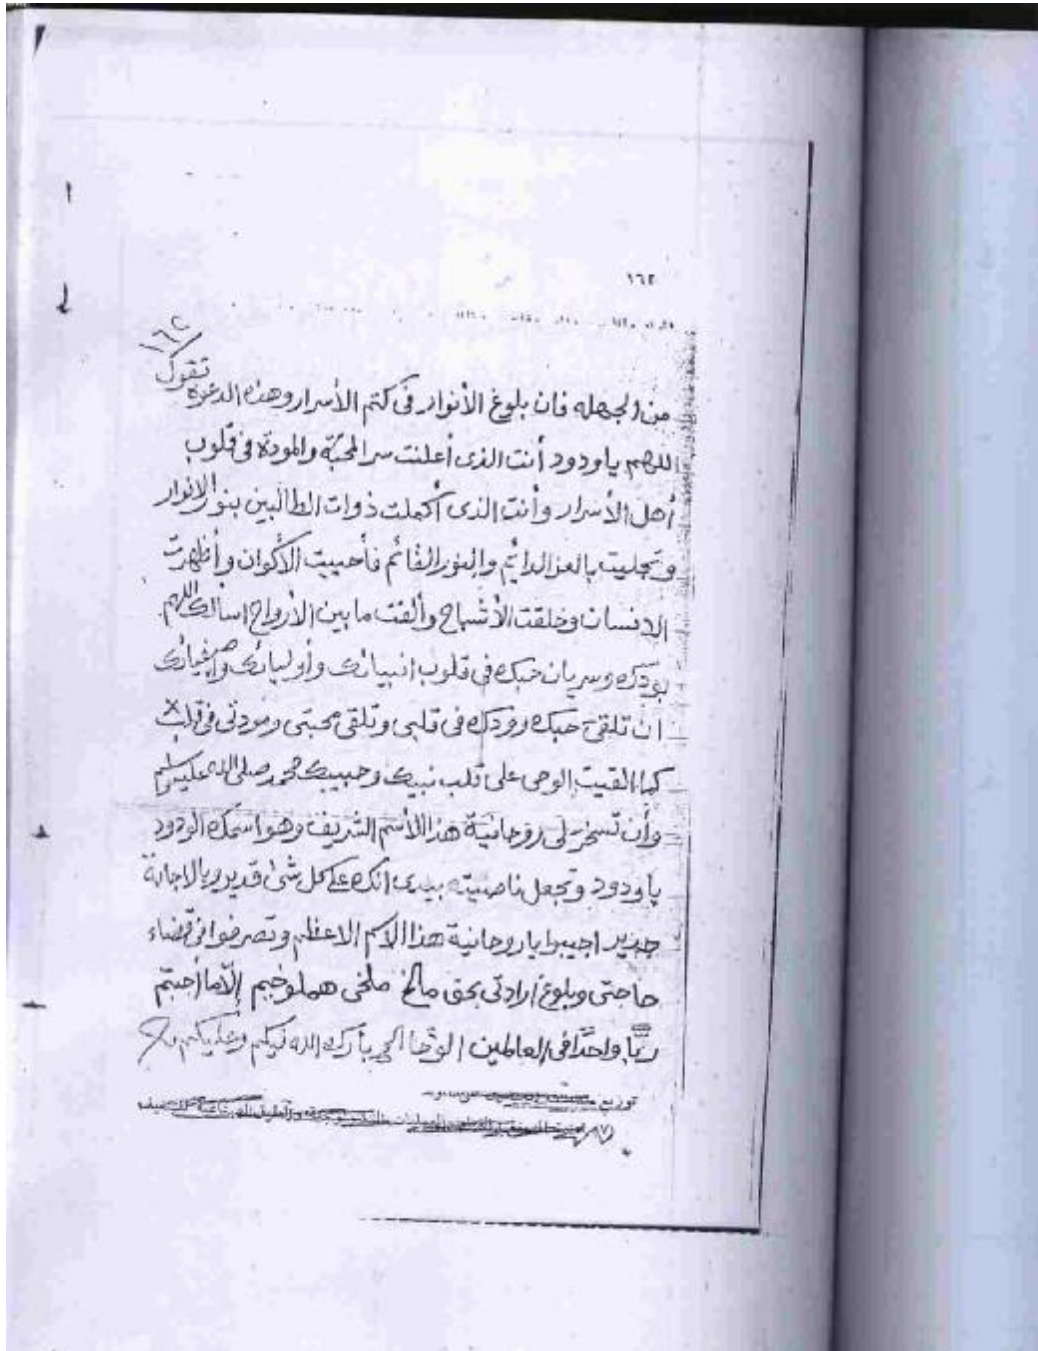 ١٦٢
١٦٢
من الجهله فان بلوغ الأنوار فى كتم الأسرار وهذه الدعوة تقول
اللهم ياودود أنت الذى أعلنت سر المحبّة والمودة فى قلوب
أهل الأسرار وأنت الذى أكملت ذوات الطالبين بنور الانوار
وتجليت بالعز الدائم والنور القائم فأحييت الأكوان وأظهرت
الانسان وخلقت الأشباح وألفت ما بين الأرواح اسألك اللهم
بودّك وسريان حبك فى قلوب انبيائك وأوليائك وأصفيائك
ان تلقى حبك وودك فى قلبى وتلقى محبتى ومودتى فى قلب
كما القيت الوحى على قلب نبيك وحبيبك محمد صلى الله عليه وسلم
وأن تسخر لى روحانية هذا الأسم الشريف وهو اسمك الودود
ياودود وتجعل ناصيته بيدى انك على كل شئ قدير وبالاجابة
جدير اجيبوا ياروحانية هذا الاسم الاعظم وتصرفوا فى قضاء
حاجتى وبلوغ ارادتى بحق مالخ ملخى هملوخيم إلّا ما أجبتم
ربّا واحدًا فى العالمين الوحا بارك الله فيكم وعليكم
توزيع